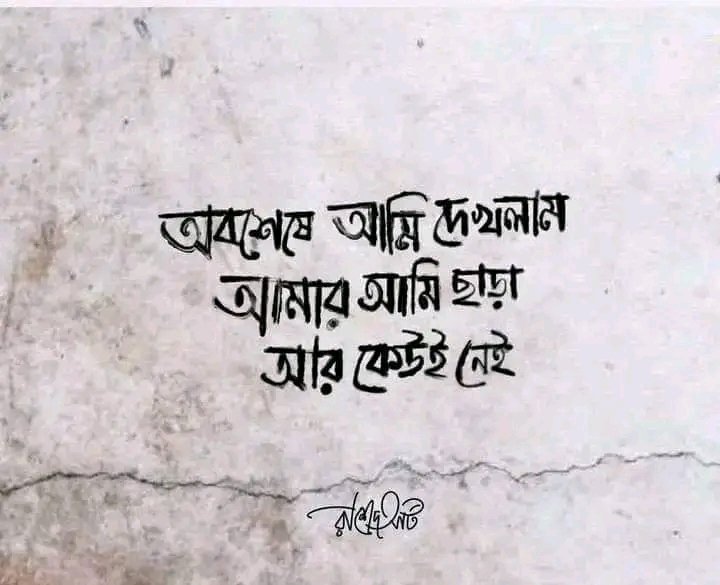 অবশেষে আমি দেখলাম
আমার আমি ছাড়া
আর কেউই নেই